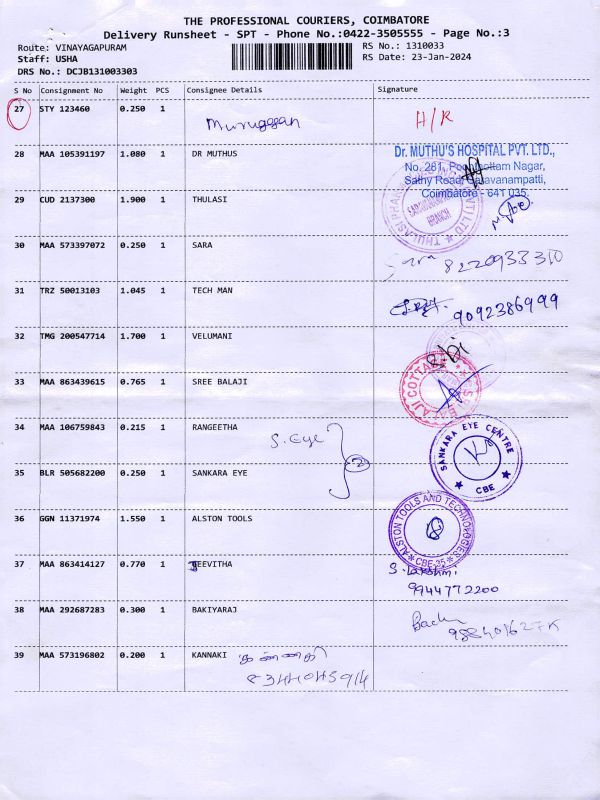 THE PROFESSIONAL COURIERS, COIMBATORE
Delivery Runsheet - SPT - Phone No.:0422-3505555 - Page No.:3
Route: VINAYAGAPURAM
RS No.: 1310033
Staff: USHA
RS Date: 23-Jan-2024
DRS No.: DCJB131003303
S No Consignment No Weight PCS Consignee Details Signature
27 STY 123460 0.250 1 Muruggan H/R
28 MAA 105391197 1.080 1 DR MUTHUS
Dr. MUTHU'S HOSPITAL PVT. LTD.,
Nagar,
Sathy Road, Saravanampatti,
Coimbatore - 641 035.
29 CUD 2137300 1.900 1 THULASI
BRANCH
30 MAA 573397072 0.250 1 SARA
Sara 8220933310
31 TRZ 50013103 1.045 1 TECH MAN
9092386999
32 TMG 200547714 1.700 1 VELUMANI
33 MAA 863439615 0.765 1 SREE BALAJI
34 MAA 106759843 0.215 1 RANGEETHA
S. Eye 2
SANKARA EYE CENTRE
CBE
35 BLR 505682200 0.250 1 SANKARA EYE
36 GGN 11371974 1.550 1 ALSTON TOOLS
ALSTON TOOLS AND TECHNOLOGIES
CBE-35
37 MAA 863414127 0.770 1 JEEVITHA
S. Lakshmi
9944772200
38 MAA 292687283 0.300 1 BAKIYARAJ
39 MAA 573196802 0.200 1 KANNAKI
8344045914